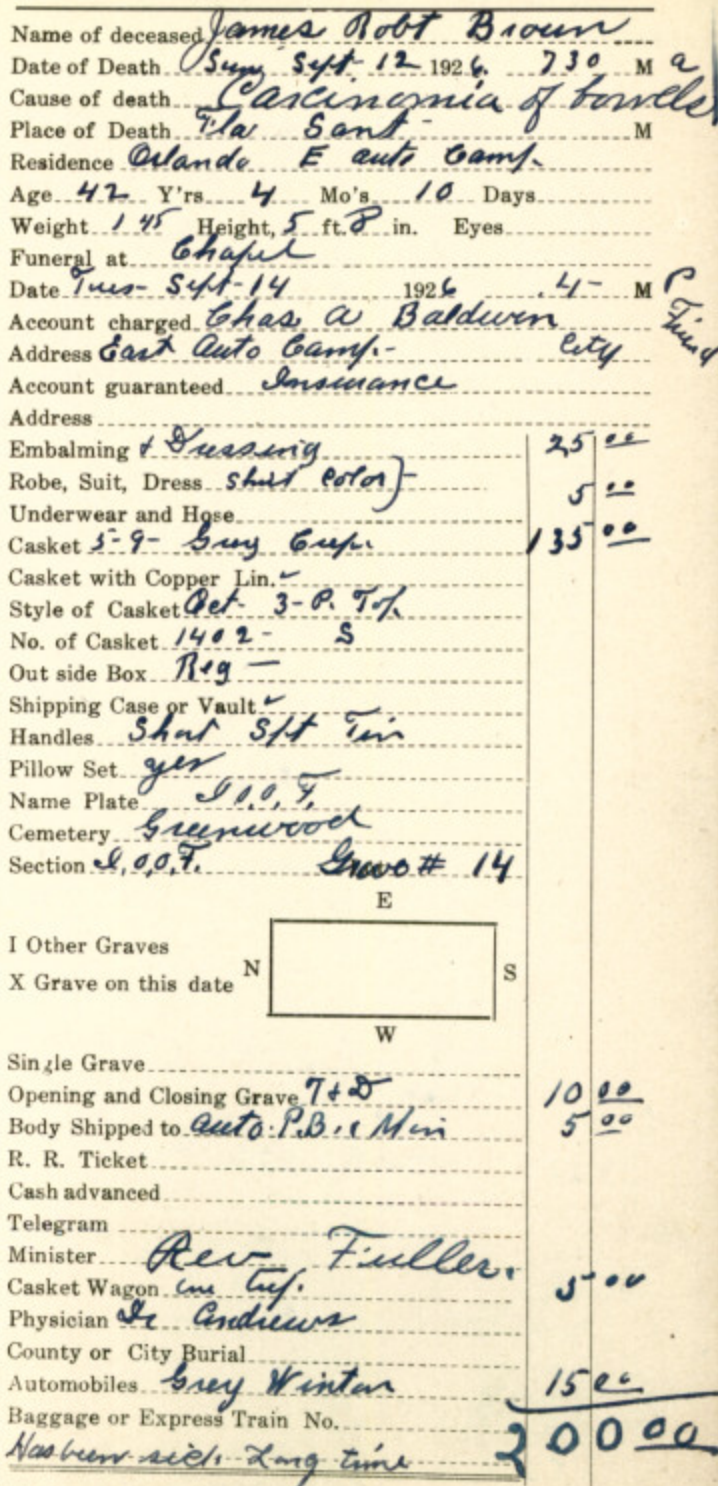 Name of deceased James Robt Brown
Date of Death Sun Sept 12 1926. 730 M a
Cause of death Carcinomia of bowels
Place of Death Fla Sant- M
Residence Orlando E auto Camp-
Age 42 Y'rs 4 Mo's 10 Days
Weight 145 Height, 5 ft. 8 in. Eyes
Funeral at Chapel
Date Tues- Sept-14 1926 4- M P
Account charged Chas A Baldwin Friend
Address East Auto Camp.- City
Account guaranteed Insurance
Address
Embalming & Dressing 25 00
Robe, Suit, Dress Shirt Color } 5 00
Underwear and Hose
Casket 5-9- Grey Crep. 135 00
Casket with Copper Lin. ✓
Style of Casket Oct- 3-P. Top.
No. of Casket 1402- S
Out side Box Reg -
Shipping Case or Vault ✓
Handles Short Sft Tin
Pillow Set yes
Name Plate I.O.O.F.
Cemetery Greenwood
Section I.O.O.F. Grave # 14
E
I Other Graves
X Grave on this date N S
W
Single Grave
Opening and Closing Grave T & D 10 00
Body Shipped to auto. P.B. & Min 5 00
R. R. Ticket
Cash advanced
Telegram
Minister Rev Fuller.
Casket Wagon one trip. 5 00
Physician Dr Andrews
County or City Burial
Automobiles Grey Winton 15 00
Baggage or Express Train No. 200 00
Has been sick Long time